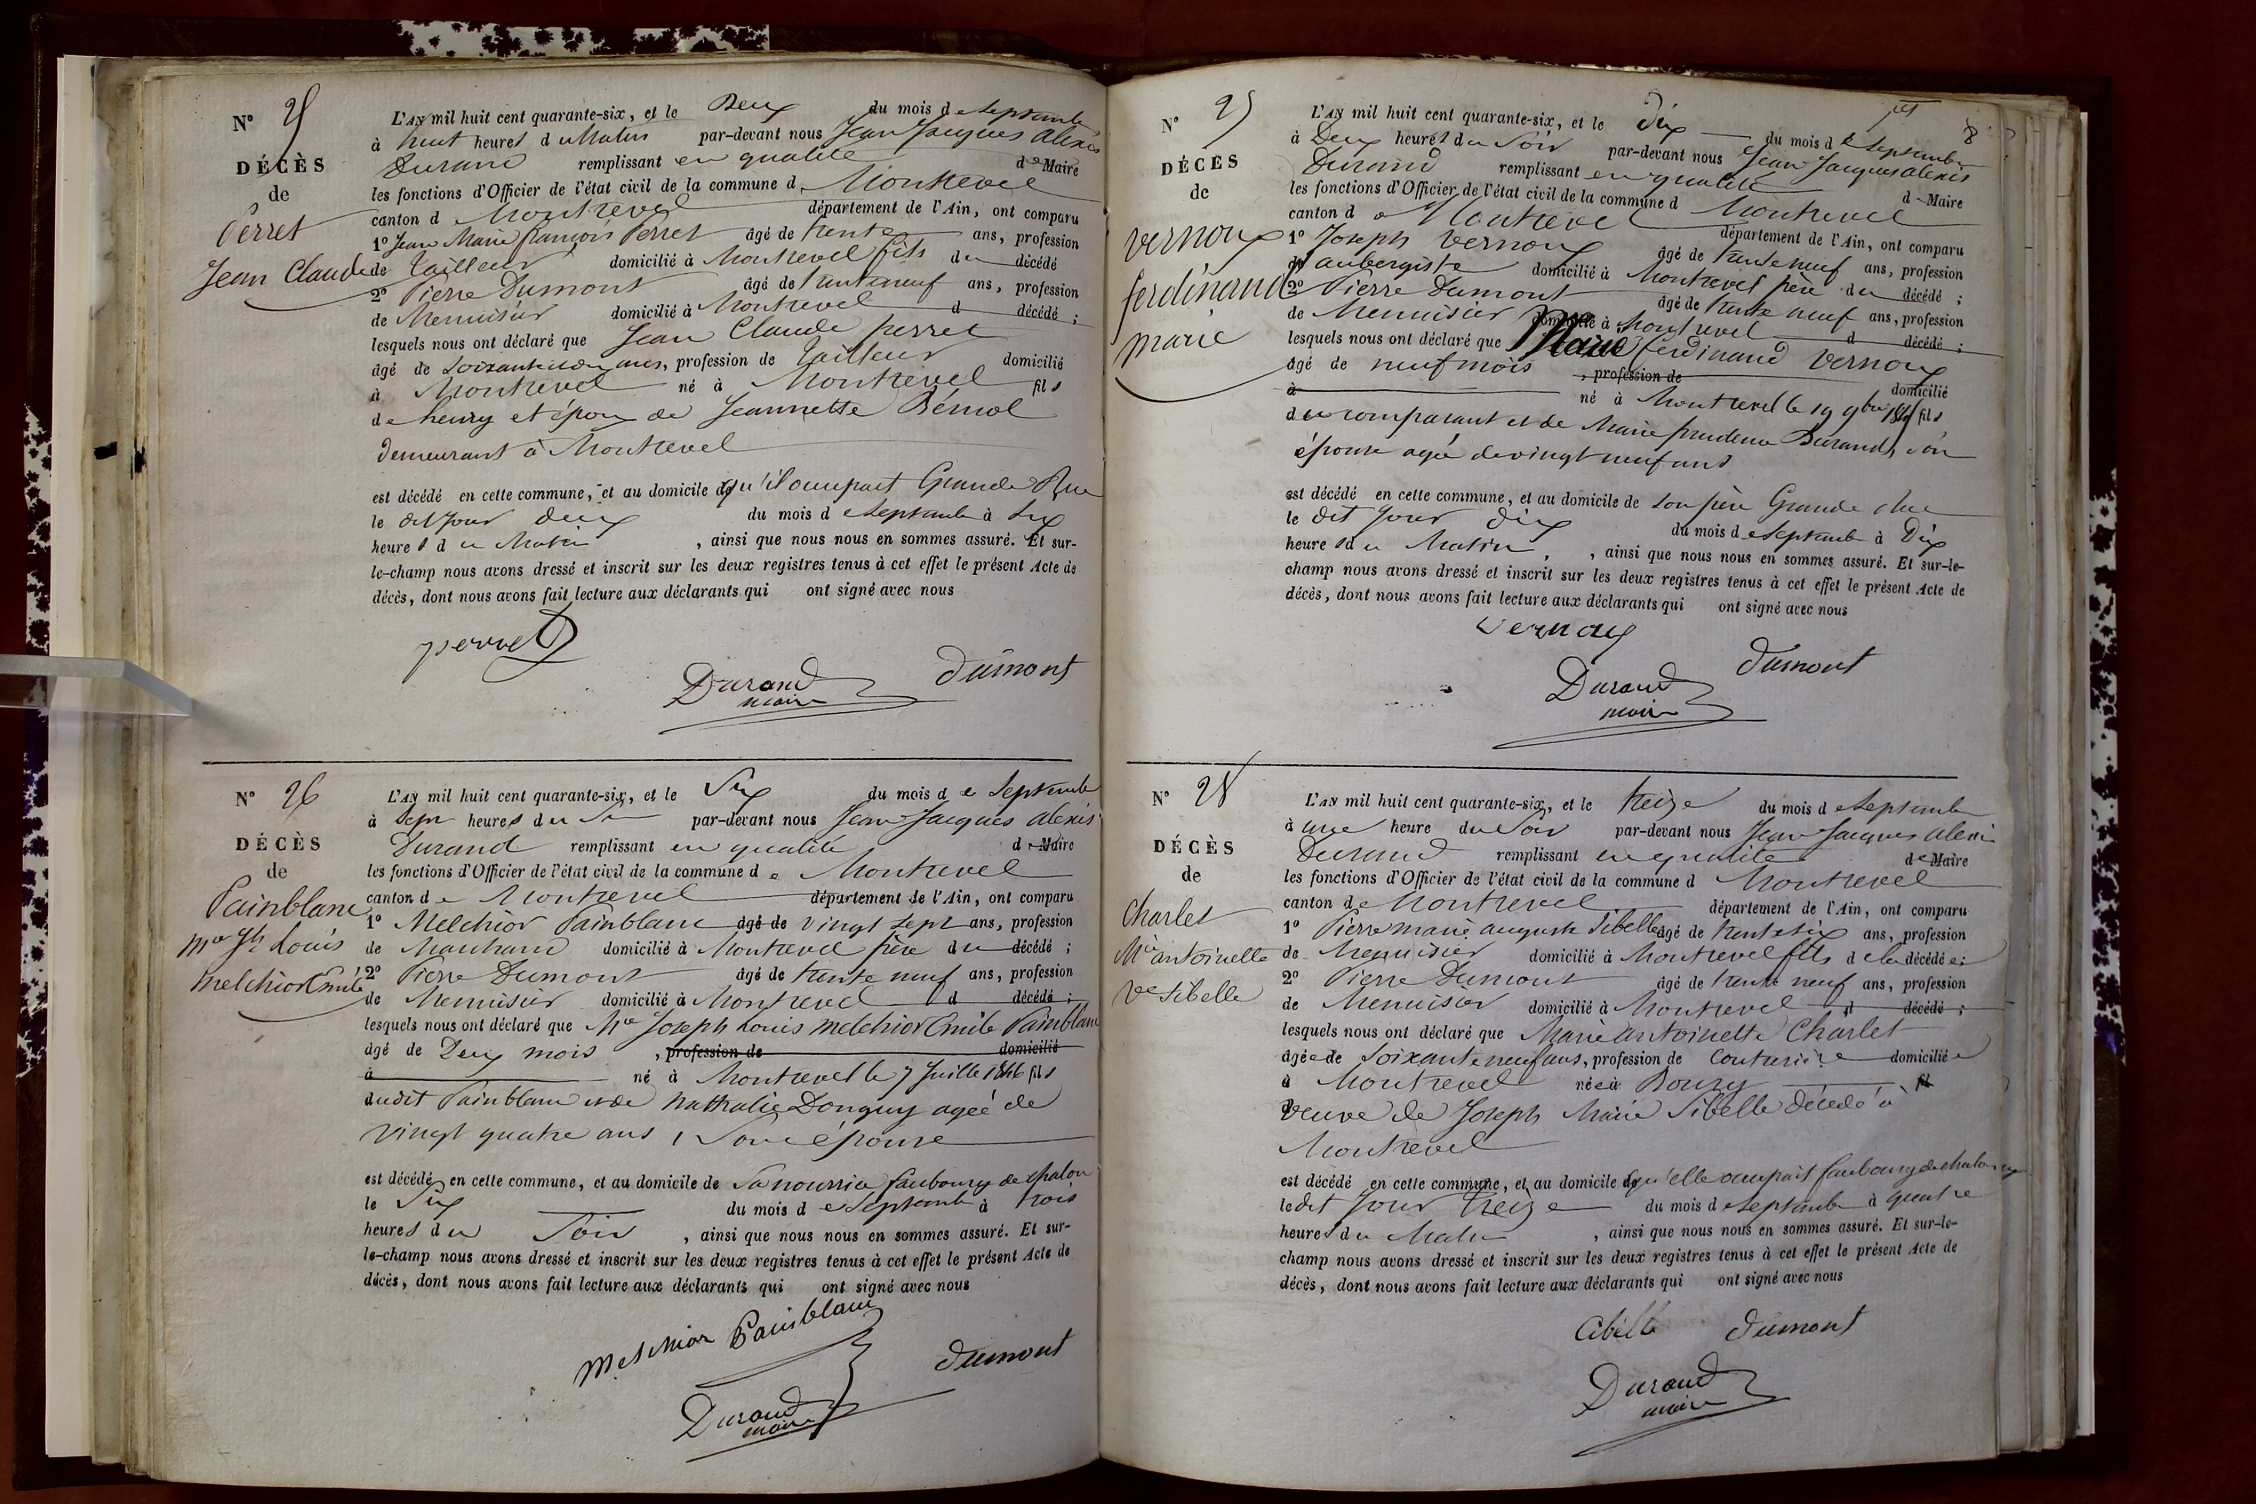 N° 25
DÉCÈS
de
Perret
Jean Claude
L'AN mil huit cent quarante-six, et le Deux du mois de Septembre
à huit heures du Matin par-devant nous Jean Jacques alexis
Durand remplissant en qualité de Maire
les fonctions d'Officier de l'état civil de la commune d Montrevel
canton d Montrevel département de l'Ain, ont comparu
1° Jean Marie françois Perret âgé de trente ans, profession
de Tailleur domicilié à Montrevel fils du décédé
2° Pierre Dumont âgé de trente neuf ans, profession
de Menuisier domicilié à Montrevel d décédé ;
lesquels nous ont déclaré que Jean Claude perret
âgé de ans, profession de Tailleur domicilié
à Montrevel né à Montrevel fils
de henry et époux de Jeannette
demeurant à Montrevel
est décédé en cette commune, et au domicile qu'il occupait Grande Rue
le dit jour deux du mois de Septembre à Six
heures du Matin , ainsi que nous nous en sommes assuré. Et sur-
le-champ nous avons dressé et inscrit sur les deux registres tenus à cet effet le présent Acte de
décès, dont nous avons fait lecture aux déclarants qui ont signé avec nous
perret
Durand
maire
Dumont
N° 26
DÉCÈS
de
Painblanc
Mie Jh Louis
melchior Emile
L'AN mil huit cent quarante-six, et le Six du mois de Septembre
à Sept heures du Soir par-devant nous Jean Jacques alexis
Durand remplissant en qualité de Maire
les fonctions d'Officier de l'état civil de la commune de Montrevel
canton de Montrevel département de l'Ain, ont comparu
1° Melchior Painblanc âgé de vingt sept ans, profession
de Marchand domicilié à Montrevel père du décédé ;
2° Pierre Dumont âgé de trente neuf ans, profession
de Menuisier domicilié à Montrevel d décédé ;
lesquels nous ont déclaré que Mie Joseph Louis melchior Emile Painblanc
âgé de Deux mois , profession de domicilié
à né à Montrevel le 7 Juillet 1846 fils
dudit Painblanc et de Nathalie Donguy agée de
vingt quatre ans , Son épouse
est décédé en cette commune, et au domicile de Sa nourrice faubourg de chalon
le Six du mois de Septembre à trois
heures du Soir , ainsi que nous nous en sommes assuré. Et sur-
le-champ nous avons dressé et inscrit sur les deux registres tenus à cet effet le présent Acte de
décès, dont nous avons fait lecture aux déclarants qui ont signé avec nous
Melchior Painblanc
Dumont
Durand
maire
8
N° 27
DÉCÈS
de
Vernoux
ferdinand
marie
L'AN mil huit cent quarante-six, et le dix du mois de Septembre
à Deux heures du Soir par-devant nous Jean Jacques alexis
Durand remplissant en qualité de Maire
les fonctions d'Officier de l'état civil de la commune d Montrevel
canton de Montrevel département de l'Ain, ont comparu
1° Joseph Vernoux âgé de trente neuf ans, profession
d'aubergiste domicilié à Montrevel père du décédé ;
2° Pierre Dumont âgé de trente neuf ans, profession
de Menuisier domicilié à Montrevel d décédé ;
lesquels nous ont déclaré que Marie ferdinand Vernoux
âgé de neuf mois , profession de domicilié
à né à Montrevel le 19 9bre fils
du comparant et de Marie prudence Durand, son
épouse agée de vingt neuf ans
est décédé en cette commune, et au domicile de son père Grande Rue
le dit jour dix du mois de Septembre à Dix
heures du Matin , ainsi que nous nous en sommes assuré. Et sur-le-
champ nous avons dressé et inscrit sur les deux registres tenus à cet effet le présent Acte de
décès, dont nous avons fait lecture aux déclarants qui ont signé avec nous
Vernoux
Dumont
Durand
maire
N° 28
DÉCÈS
de
Charlet
Mie antoinette
Ve Sibelle
L'AN mil huit cent quarante-six, et le treize du mois de Septembre
à une heure du Soir par-devant nous Jean Jacques alexis
Durand remplissant en qualité de Maire
les fonctions d'Officier de l'état civil de la commune d Montrevel
canton de Montrevel département de l'Ain, ont comparu
1° Pierre marie auguste Sibelle âgé de trente six ans, profession
de Menuisier domicilié à Montrevel fils de la décédée ;
2° Pierre Dumont âgé de trente neuf ans, profession
de Menuisier domicilié à Montrevel d décédé ;
lesquels nous ont déclaré que Marie antoinette Charlet
âgée de Soixante neuf ans, profession de Couturière domiciliée
à Montrevel née à Bourg fil
veuve de Joseph Marie Sibelle décédé à
Montrevel
est décédé en cette commune, et au domicile qu'elle occupait faubourg de chalon
le dit jour treize du mois de Septembre à quatre
heures du Matin , ainsi que nous nous en sommes assuré. Et sur-le-
champ nous avons dressé et inscrit sur les deux registres tenus à cet effet le présent Acte de
décès, dont nous avons fait lecture aux déclarants qui ont signé avec nous
Cibelle
Dumont
Durand
maire